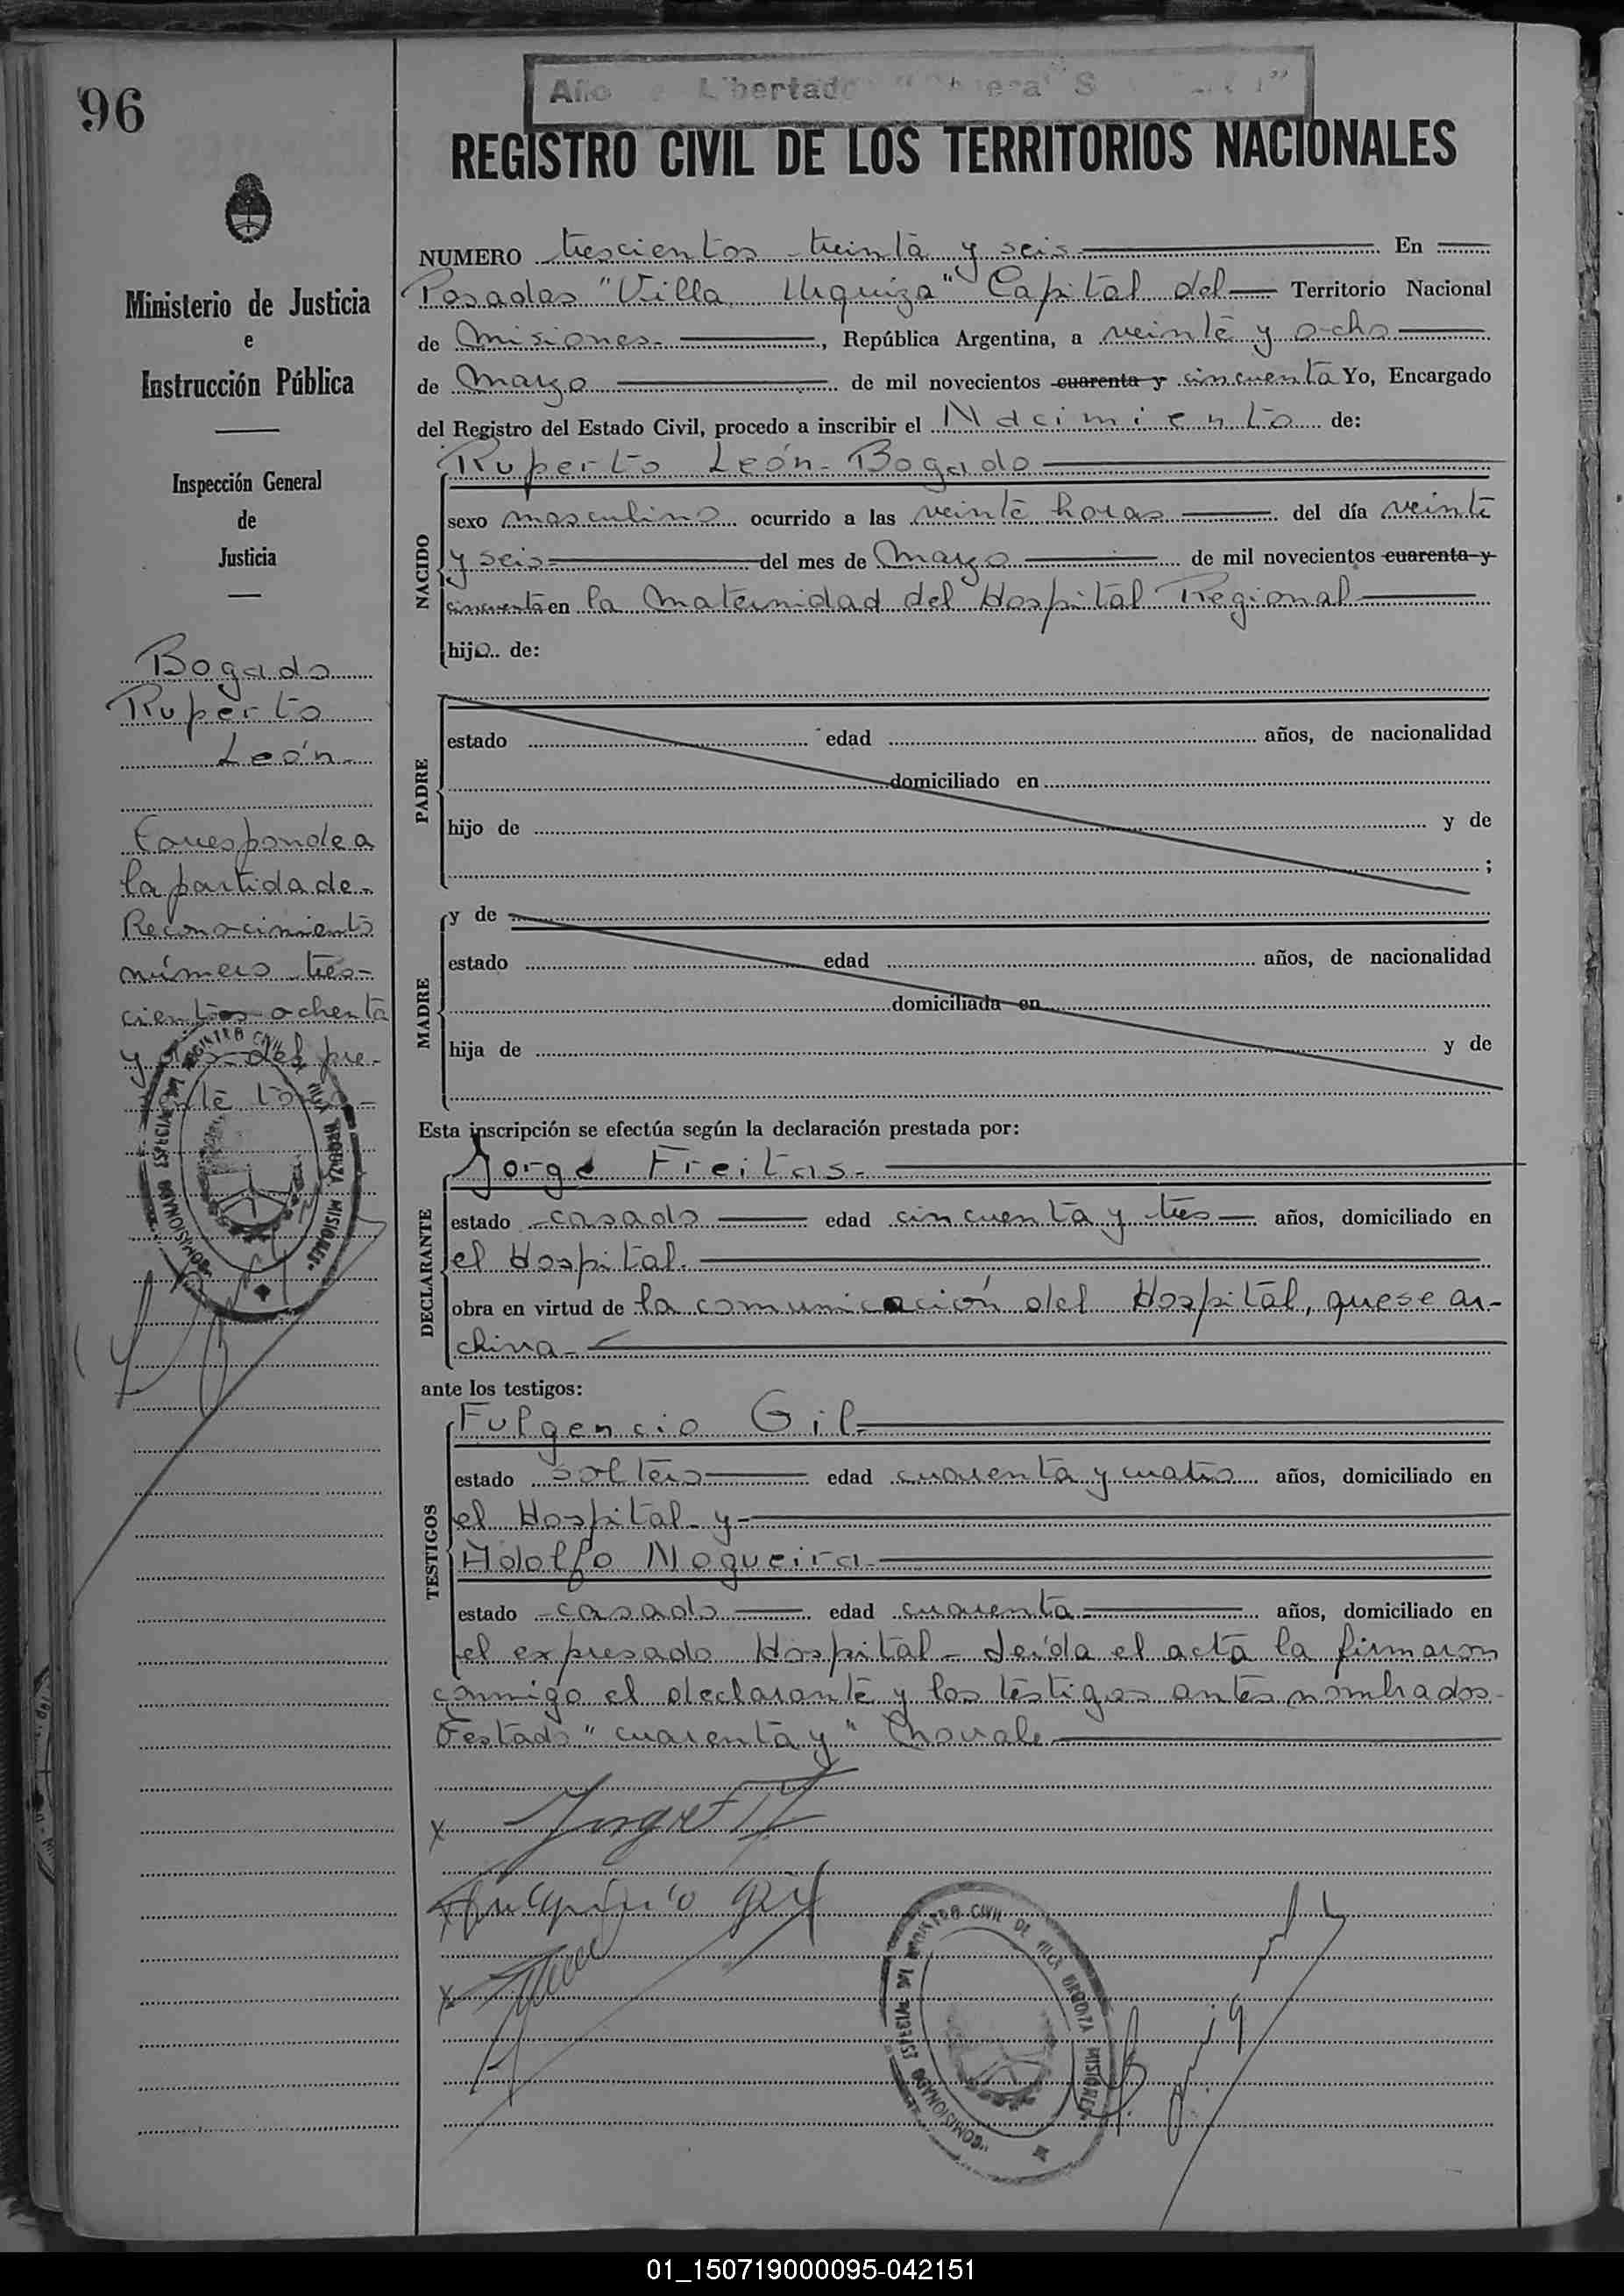 96
Año Libertador
REGISTRO CIVIL DE LOS TERRITORIOS NACIONALES
Ministerio de Justicia
e
Instrucción Pública
Inspección General
de
Justicia
Bogado
Ruperto
León.-
Corresponde a
la partida de-
Reconocimiento
número tres-
cientos ochenta
y del pre-
NUMERO trescientos treinta y seis En
Posadas "Villa Urquiza" Capital del Territorio Nacional
de Misiones.-, República Argentina, a veinte y ocho
de Marzo de mil novecientos cuarenta y cincuenta Yo, Encargado
del Registro del Estado Civil, procedo a inscribir el Nacimiento de:
Ruperto León.- Bogado
NACIDO
sexo masculino ocurrido a las veinte horas del día veinte
y seis del mes de Marzo de mil novecientos cuarenta y
cincuenta en la Maternidad del Hospital Regional
hijo de:
PADRE
estado edad años, de nacionalidad
domiciliado en
hijo de y de
;
MADRE
y de
estado edad años, de nacionalidad
domiciliada en
hija de y de
Esta inscripción se efectúa según la declaración prestada por:
DECLARANTE
Jorge Freitas.-
estado casado edad cincuenta y tres años, domiciliado en
el Hospital.-
obra en virtud de la comunicación del Hospital, que se ar-
chiva.-
ante los testigos:
TESTIGOS
Fulgencio Gil
estado soltero edad cuarenta y cuatro años, domiciliado en
el Hospital y
Adolfo Nogueira
estado casado edad cuarenta años, domiciliado en
el expresado Hospital.- Leída el acta la firmaron
conmigo el declarante y los testigos antes nombrados.
Testado "cuarenta y" Novale
REGISTRO CIVIL DE VILLA URQUIZA MISIONES
COMISIONADO
01_150719000095-042151